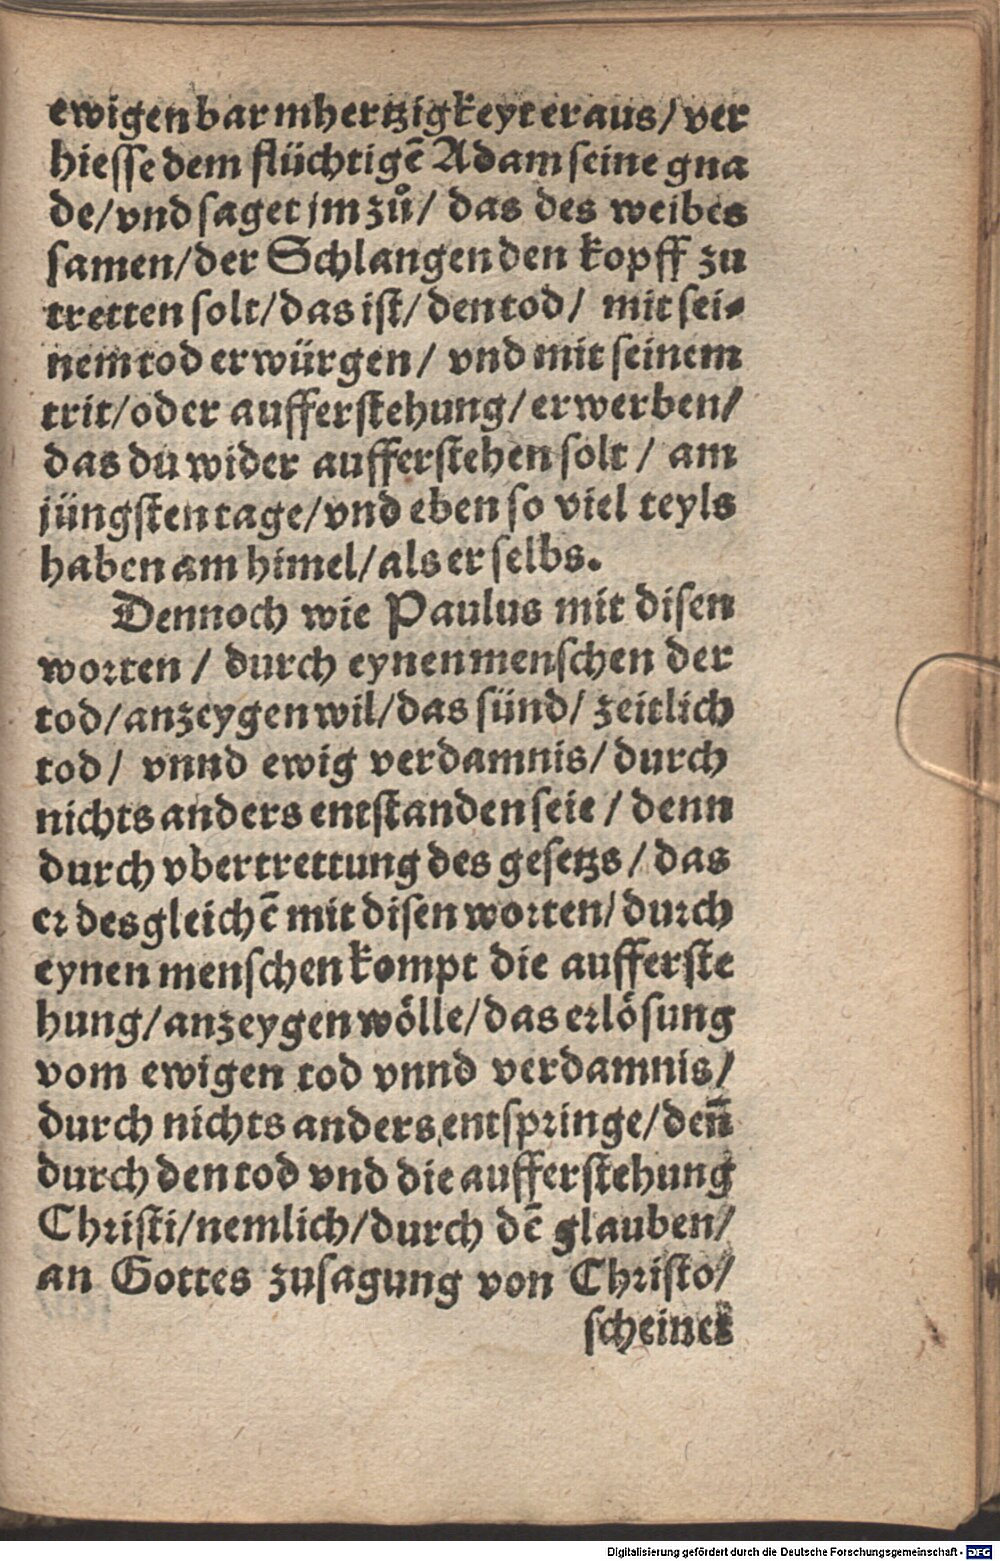 ewigen barmhertzigkeyt eraus/ ver
hiesse dem flüchtigē Adam seine gna
de/ vnd saget jm zů/ das des weibes
samen/ der Schlangen den kopff zu
tretten solt/ das ist/ den tod/ mit sei-
nem tod erwürgen/ vnd mit seinem
trit/ oder aufferstehung/ erwerben/
das du wider aufferstehen solt/ am
jüngsten tage/ vnd eben so viel teyls
haben am himel/ als er selbs.
Dennoch wie Paulus mit disen
worten/ durch eynen menschen der
tod/ anzeygen wil/ das sünd/ zeitlich
tod/ vnnd ewig verdamnis/ durch
nichts anders entstanden seie/ denn
durch vbertrettung des gesetzs/ das
er desgleichē mit disen worten/ durch
eynen menschen kompt die aufferste
hung/ anzeygen wölle/ das erlösung
vom ewigen tod vnnd verdamnis/
durch nichts anders entspringe/ den̄
durch den tod vnd die aufferstehung
Christi/ nemlich/ durch dē glauben/
an Gottes zusagung von Christo/
scheinet
Digitalisierung gefördert durch die Deutsche Forschungsgemeinschaft - DFG